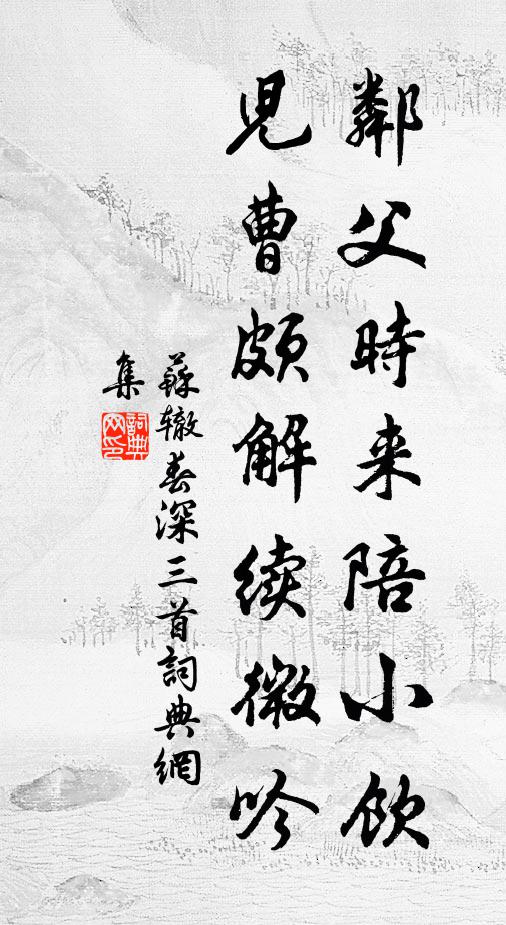 鄰父時来陪小飲
兒曹頗解續微吟
蘇辙春深三首詞典網
集
詞典
网印